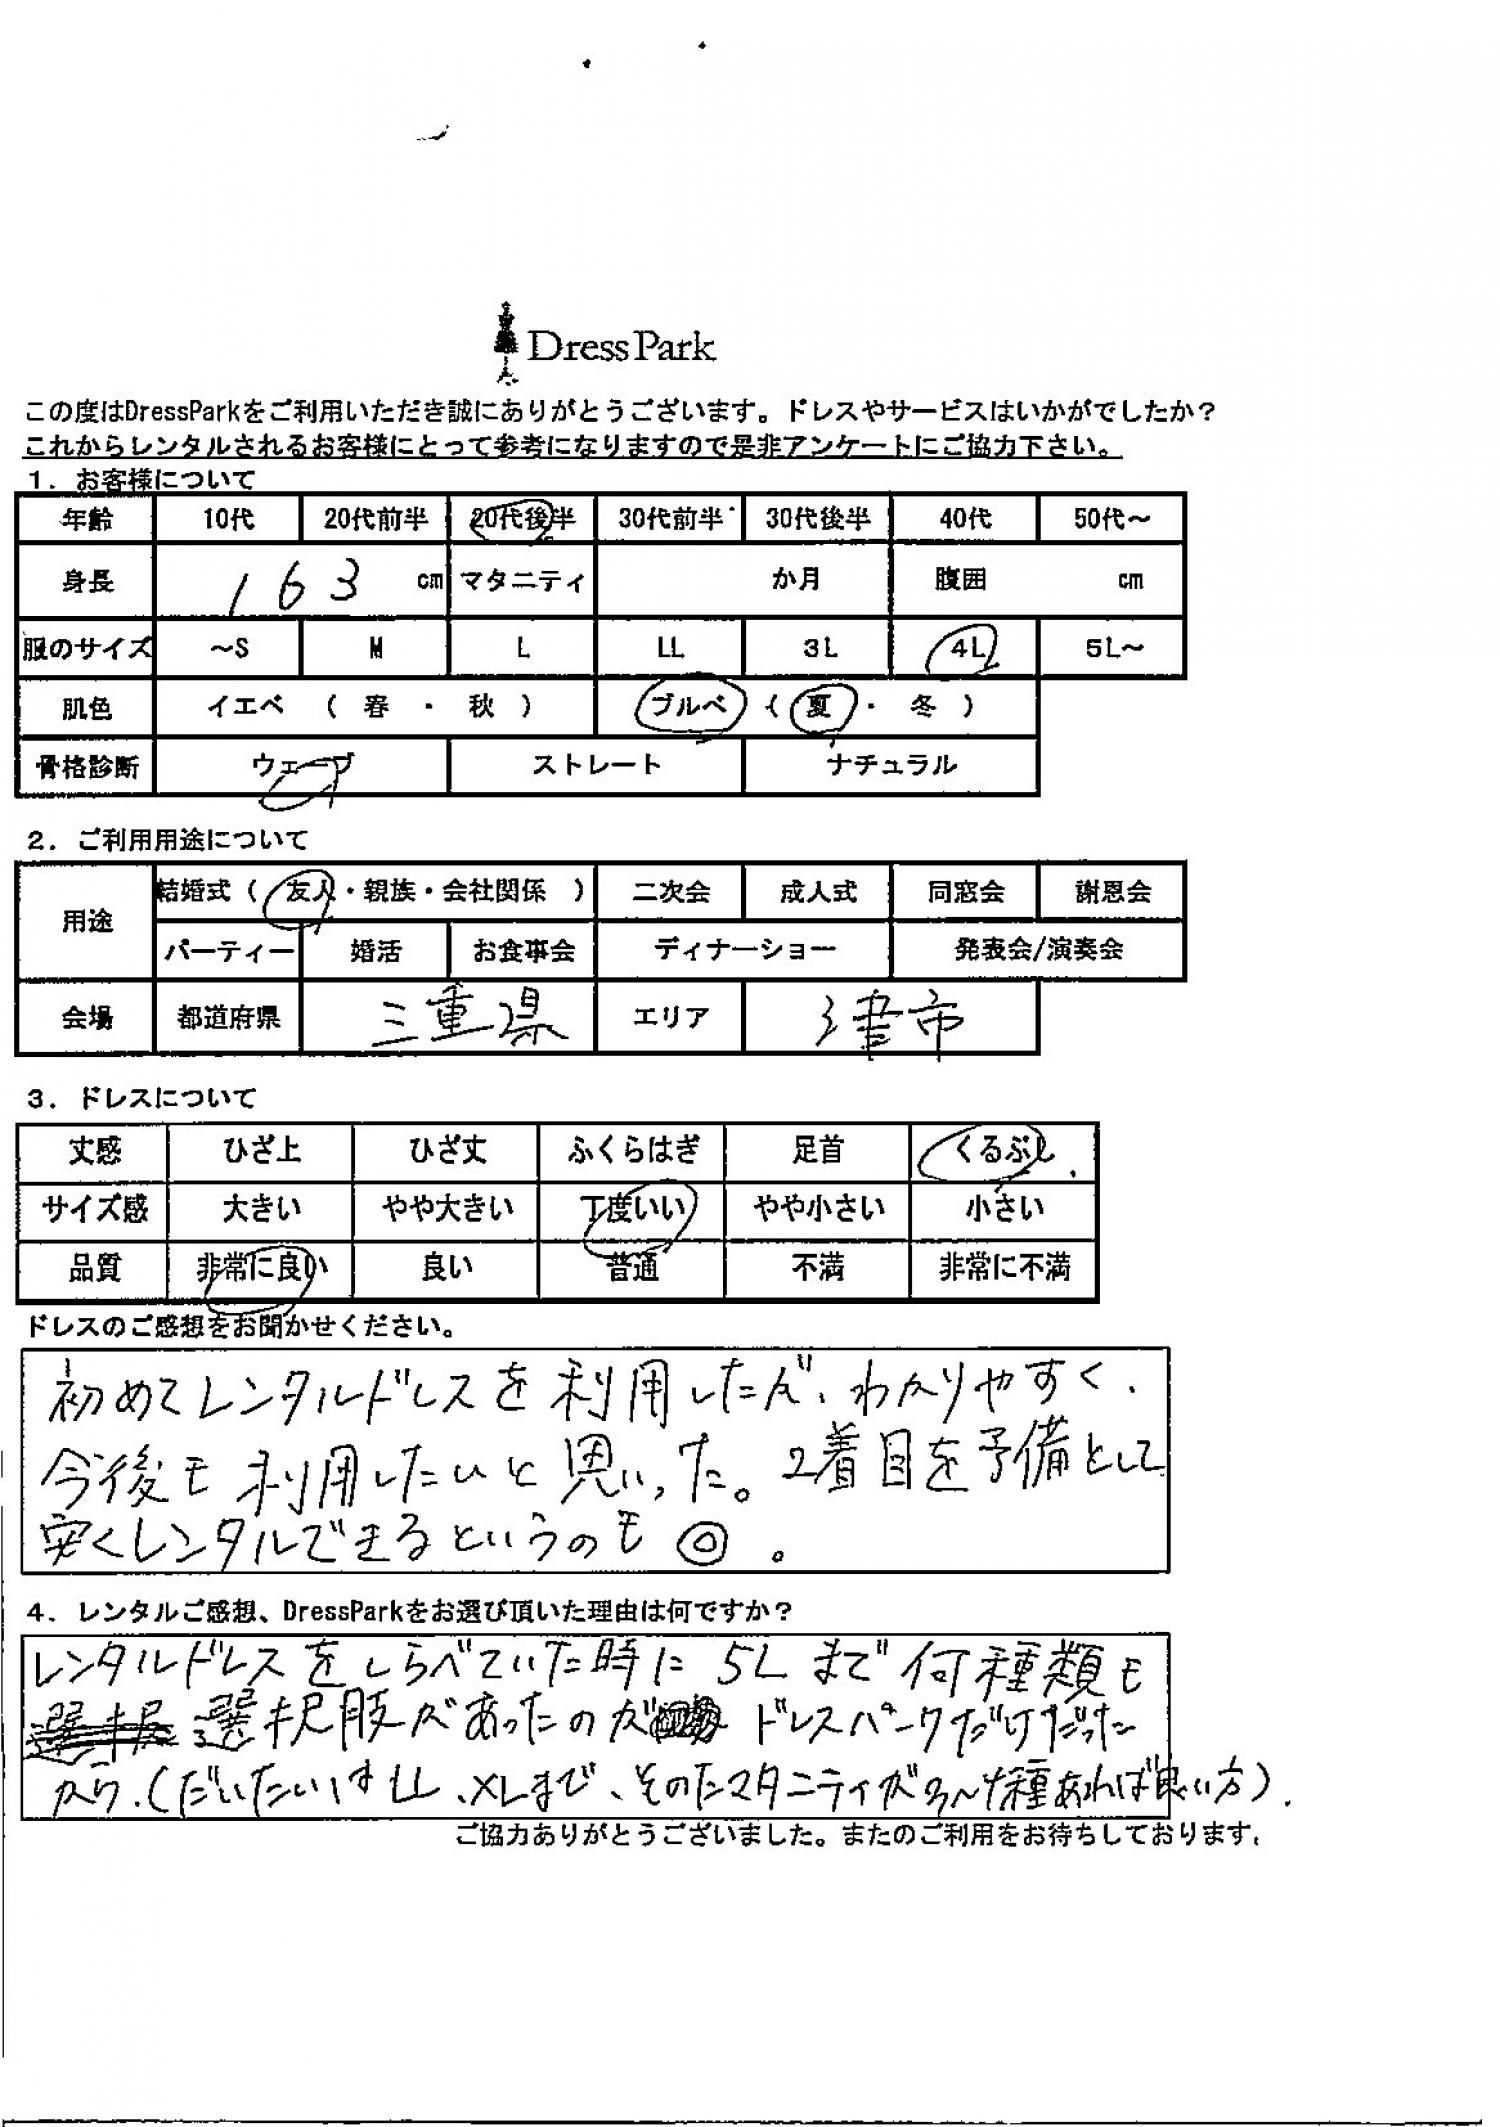 DressPark
この度はDressParkをご利用いただき誠にありがとうございます。ドレスやサービスはいかがでしたか？
これからレンタルされるお客様にとって参考になりますので是非アンケートにご協力下さい。
1．お客様について
年齢 10代 20代前半 20代後半 30代前半 30代後半 40代 50代～
身長 163 cm マタニティ か月 腹囲 cm
服のサイズ ～S M L LL 3L 4L 5L～
肌色 イエベ （ 春 ・ 秋 ） ブルベ （ 夏 ・ 冬 ）
骨格診断 ウェーブ ストレート ナチュラル
2．ご利用用途について
用途 結婚式（ 友人・親族・会社関係 ） 二次会 成人式 同窓会 謝恩会
パーティー 婚活 お食事会 ディナーショー 発表会/演奏会
会場 都道府県 三重県 エリア 津市
3．ドレスについて
丈感 ひざ上 ひざ丈 ふくらはぎ 足首 くるぶし
サイズ感 大きい やや大きい 丁度いい やや小さい 小さい
品質 非常に良い 良い 普通 不満 非常に不満
ドレスのご感想をお聞かせください。
初めてレンタルドレスを利用したが、わかりやすく、
今後も利用したいと思いった。2着目を予備として
安くレンタルできるというのも◎。
4．レンタルご感想、DressParkをお選び頂いた理由は何ですか？
レンタルドレスをしらべていた時に5Lまで何種類も
選択肢があったのが ドレスパークだけだった
から。（だいたいはLL、XLまで、そのたマタニティが3～4種あれば良い方）.
ご協力ありがとうございました。またのご利用をお待ちしております。